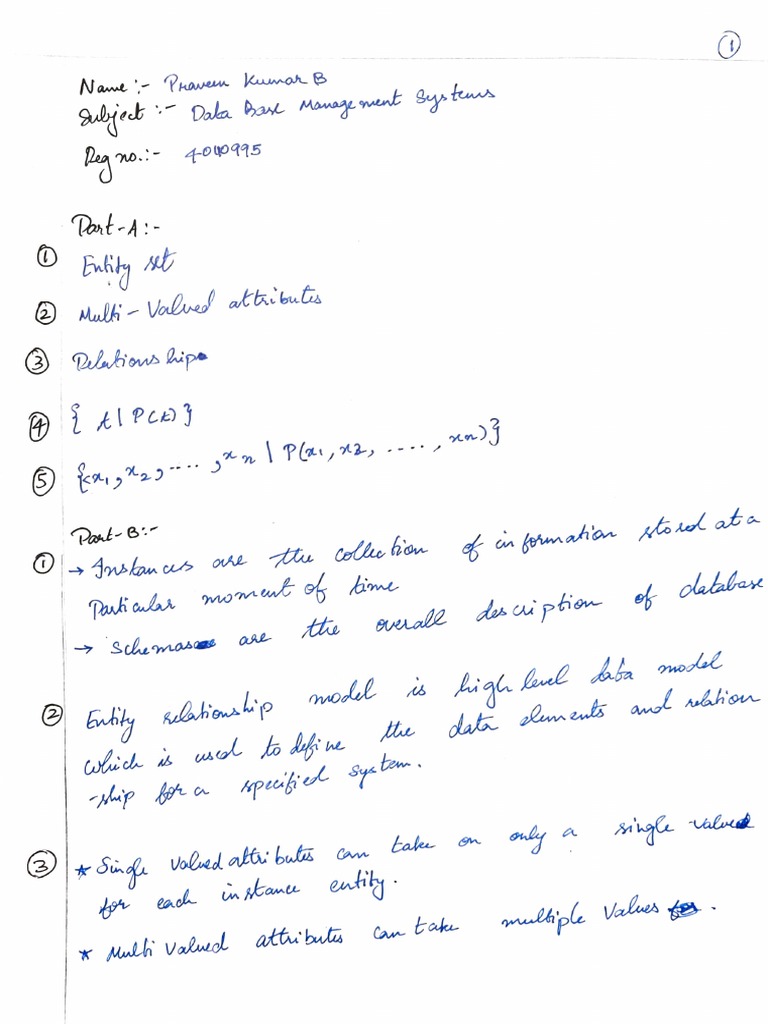 ①
Name :- Praveen Kumar B
Subject :- Data Base Management Systems
Reg no. :- 4010995
Part-A :-
① Entity set
② Multi-Valued attributes
③ Relationship
④ { t | P(t) }
⑤ {<x₁, x₂, ...., xₙ | P(x₁, x₂, ...., xₙ)}
Part-B:-
① → Instances are the collection of information stored at a
Particular moment of time
→ Schemas are the overall description of database
② Entity relationship model is high level data model
which is used to define the data elements and relation
-ship for a specified system.
③ * Single valued attributes can take on only a single valued
for each instance entity.
* Multi Valued attributes can take multiple Values .